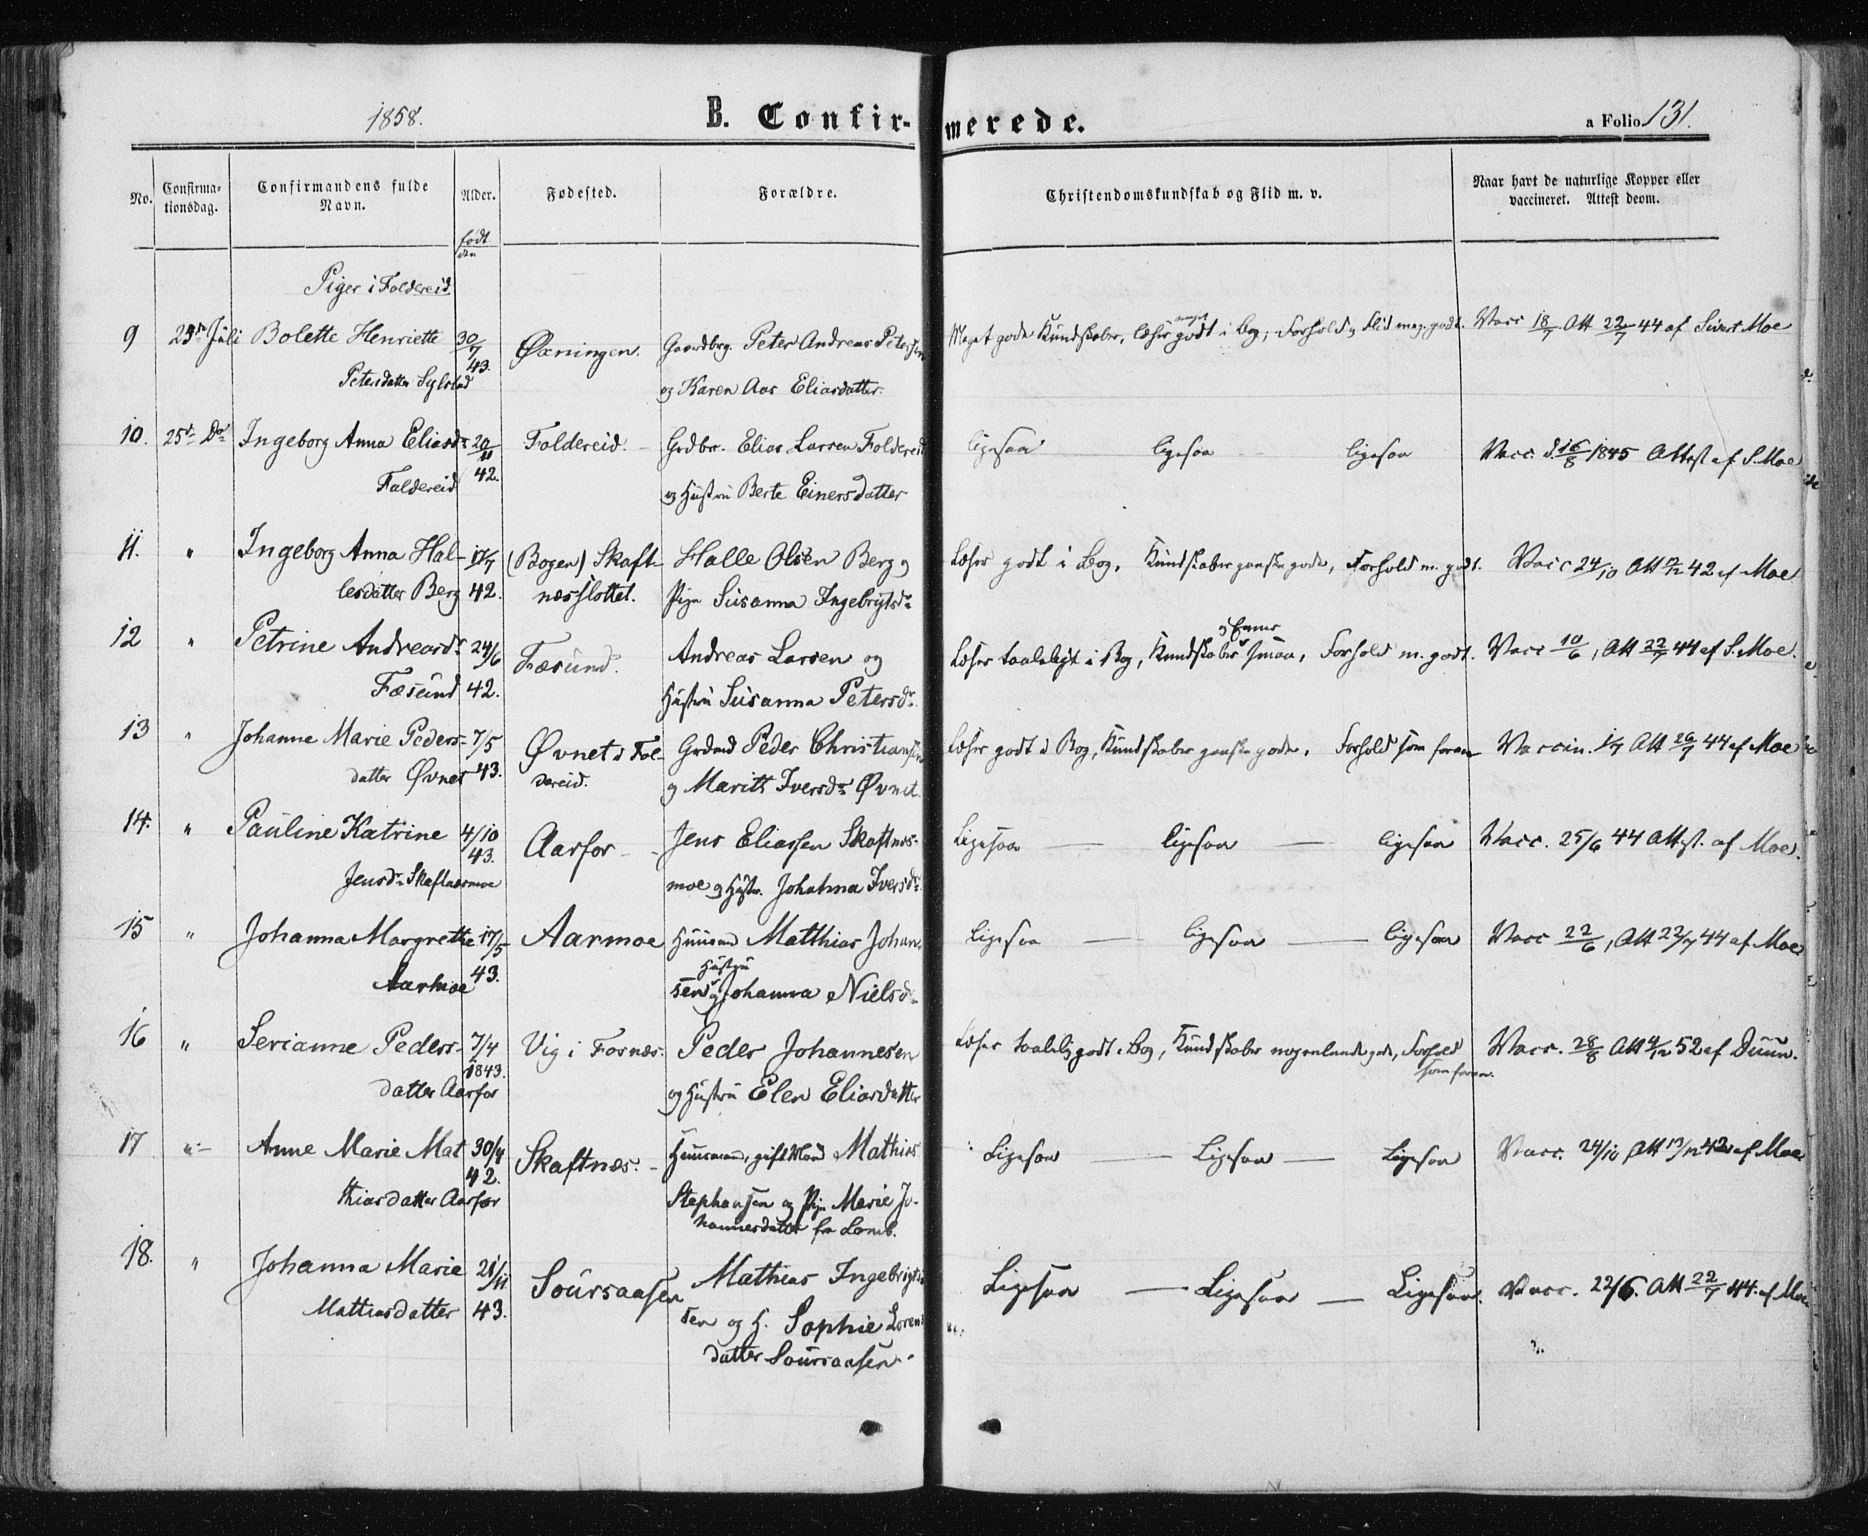 1858.
B. Confir-merede.
a Folio 131.
No.
Confirma-tionsdag.
Confirmandens fulde Navn.
Alder.
Fødested.
Forældre.
Christendomskundskab og Flid m. v.
Naar havt de naturlige Kopper eller vaccineret. Attest derom.
født den
Piger i Foldereid
9 25de Juli Bolette Henriette 30/7 Øxningen. Gaardbrg. Peter Andreas Petersen Meget gode Kundskaber, læser meget godt i Bog, Forhold og Flid meg. godt. Vacc 18/7 Att 22/7 44 af Sivert Moe
Petersdatter Sylstad 43. og Karen Aas Eliasdatter.
10. 25d. Do Ingeborg Anna Eliasdr 20/11 Foldereid. Grdbr. Elias Larsen Foldereid ligesaa ligesaa ligesaa Vacc. d. 16/8 1845 Attest af S. Moe
Foldereid 42. og Hustru Berte Einersdatter
11. " Ingeborg Anna Hal- 17/7 (Bogen) Skaft- Halle Olsen Berg og Læser godt i Bog, Kundskaber ganske gode, Forhold m. godt. Vacc 24/10 Att 42 af Moe
lesdatter Berg 42. næsslottet. Pige Susanna Ingebrigtsdr
12 " Petrine Andreasdr 24/6 Fæsund. Andreas Larsen og Læser taaleligt i Bog, Kundskaber og Evner smaa, Forhold m. godt. Vacc 10/6, Att 22/7 44 af S. Moe.
Fæsund 42. Hustru Susanna Petersdr
13 " Johanne Marie Peders- 7/5 Øvnet i Fol- Grdmd Peder Christiansen Læser godt i Bog, Kundskaber ganske gode, Forhold som foran Vaccin. 1/7 Att 26/7 44 af Moe
datter Øvnet 43. dereid. og Marith Iversdr Øvnet
14. " Pauline Katrine 4/10 Aarfor Jens Eliassen Skaftnes- Ligesaa ligesaa ligesaa Vacc. 25/6 44 Attest. af Moe.
Jensdr Skaftnæsmoe 43. moe og Hustr. Johanna Iversdr
15 " Johanna Margrethe 17/5 Aarmoe Huusmd Matthias Johan- Ligesaa ligesaa ligesaa Vacc 22/6, Att 22/7 44 af Moe
Aarmoe 43. sen og Hustru Johanna Nielsdr
16 " Serianne Peders- 7/4 Vig i Fosnæs. Peder Johannesen Læser taalelig godt i Bog, Kundskaber nogenlunde gode, Forhold som foran. Vacc. 28/8 Att 4/12 52 af Duun.
datter Aarfor 1843. og Hustru Elen Eliasdatter
17 " Anne Marie Mat 30/4 Skaftnæs. Huusmand, gift Mand Mathias Ligesaa Ligesaa Ligesaa Vacc. 24/10, Att 13/12 42 af Moe
thiasdatter Aarfor 42. Stephansen og Pige Marie Jo-
hannesdatter fra Lomb.
18. " Johanna Marie 21/11 Soursaasen Mathias Ingebrigt- Ligesaa Ligesaa Ligesaa. Vacc. 22/6. Att 22/7 44. af Moe
Mathiasdatter 43. sen og H. Sophie Lorens
datter Soursaasen